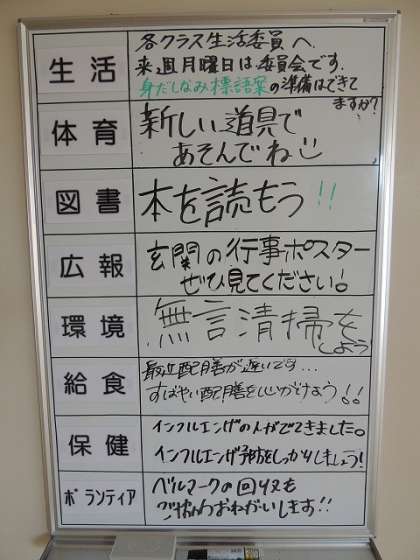 生活
各クラス生活委員へ
来週月曜日は委員会です.
身だしなみ標語案の準備はできて
ますか?
体育
新しい道具で
あそんでね
図書
本を読もう!!
広報
玄関の行事ポスター
ぜひ見てください!
環境
無言清掃を
しよう
給食
最近配膳が遅いです…
すばやい配膳を心がけよう!!
保健
インフルエンザの人がでてきました。
インフルエンザ予防をしっかりしましょう!
ボランティア
ベルマークの回収も
ご協力おねがいします!!